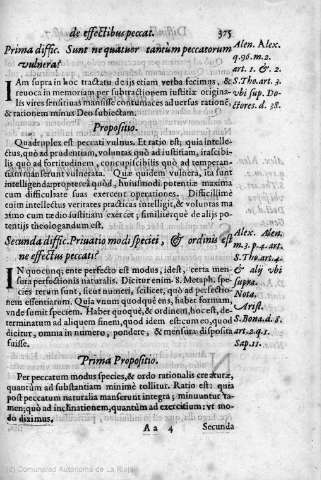 de effectibus peccat. 375
Prima diffic. Sunt ne quatuor tantum peccatorum vulnera?
Alen. Alex.
q.96.m.2.
art. 1. & 2.
S. Tho. art. 3.
vbi sup. Do-
ctores. d. 38.
Iam supra in hoc tractatu de ijs etiam verba fecimus, &
reuoca in memoriam per subtractionem iustitiæ origina-
lis vires sensitiuas mansisse contumaces aduersus rationē,
& rationem minus Deo subiectam.
Propositio.
Quadruplex est peccati vulnus. Et ratio est; quia intelle-
ctus, quò ad prudentiam, voluntas quò ad iustitiam, irascibi-
lis quò ad fortitudinem, concupiscibilis quò ad temperan-
tiam manserunt vulnerata. Quæ quidem vulnera, ita sunt
intelligenda propterea quòd, huiusmodi potentiæ maxima
cum difficultate suas exercent operationes. Difficilimè
enim intellectus veritates practicas intelligit, & voluntas ma
ximo cum tædio iustitiam exercet; similiterque de alijs po-
tentijs theologandum est.
Secunda diffic. Priuatio modi speciei, & ordinis est
ne effectus peccati?
Alex. Alen.
m. 3. p. 4. art.
S. Tho. art. 4.
& alij vbi
supra.
Nota.
Arist.
S. Bona. d. 8.
art. 2. q. 1.
Sap. 11.
IN quocunq; ente perfecto est modus, idest, certa men-
sura perfectionis naturalis. Dicitur enim 8. Metaph. spe-
cies rerum sunt, sicut numeri, scilicet, quò ad perfectio-
nem essentiarum. Quia vnum quodque ens, habet formam,
vnde sumit speciem. Habet quoque, & ordinem, hoc est, de-
terminatum ad aliquem finem, quod idem est: cum eo, quod
dicitur, omnia in numero, pondere, & mensura disposita
fuisse.
Prima Propositio.
Per peccatum modus species, & ordo rationalis creaturæ,
quantùm ad substantiam minimè tollitur. Ratio est: quia
post peccatum naturalia manserunt integra; minuuntur ta-
men; quò ad inclinationem, quantùm ad exercitium; vt mo-
do diximus.
A a 4 Secunda
(c) Comunidad Autónoma de La Rioja